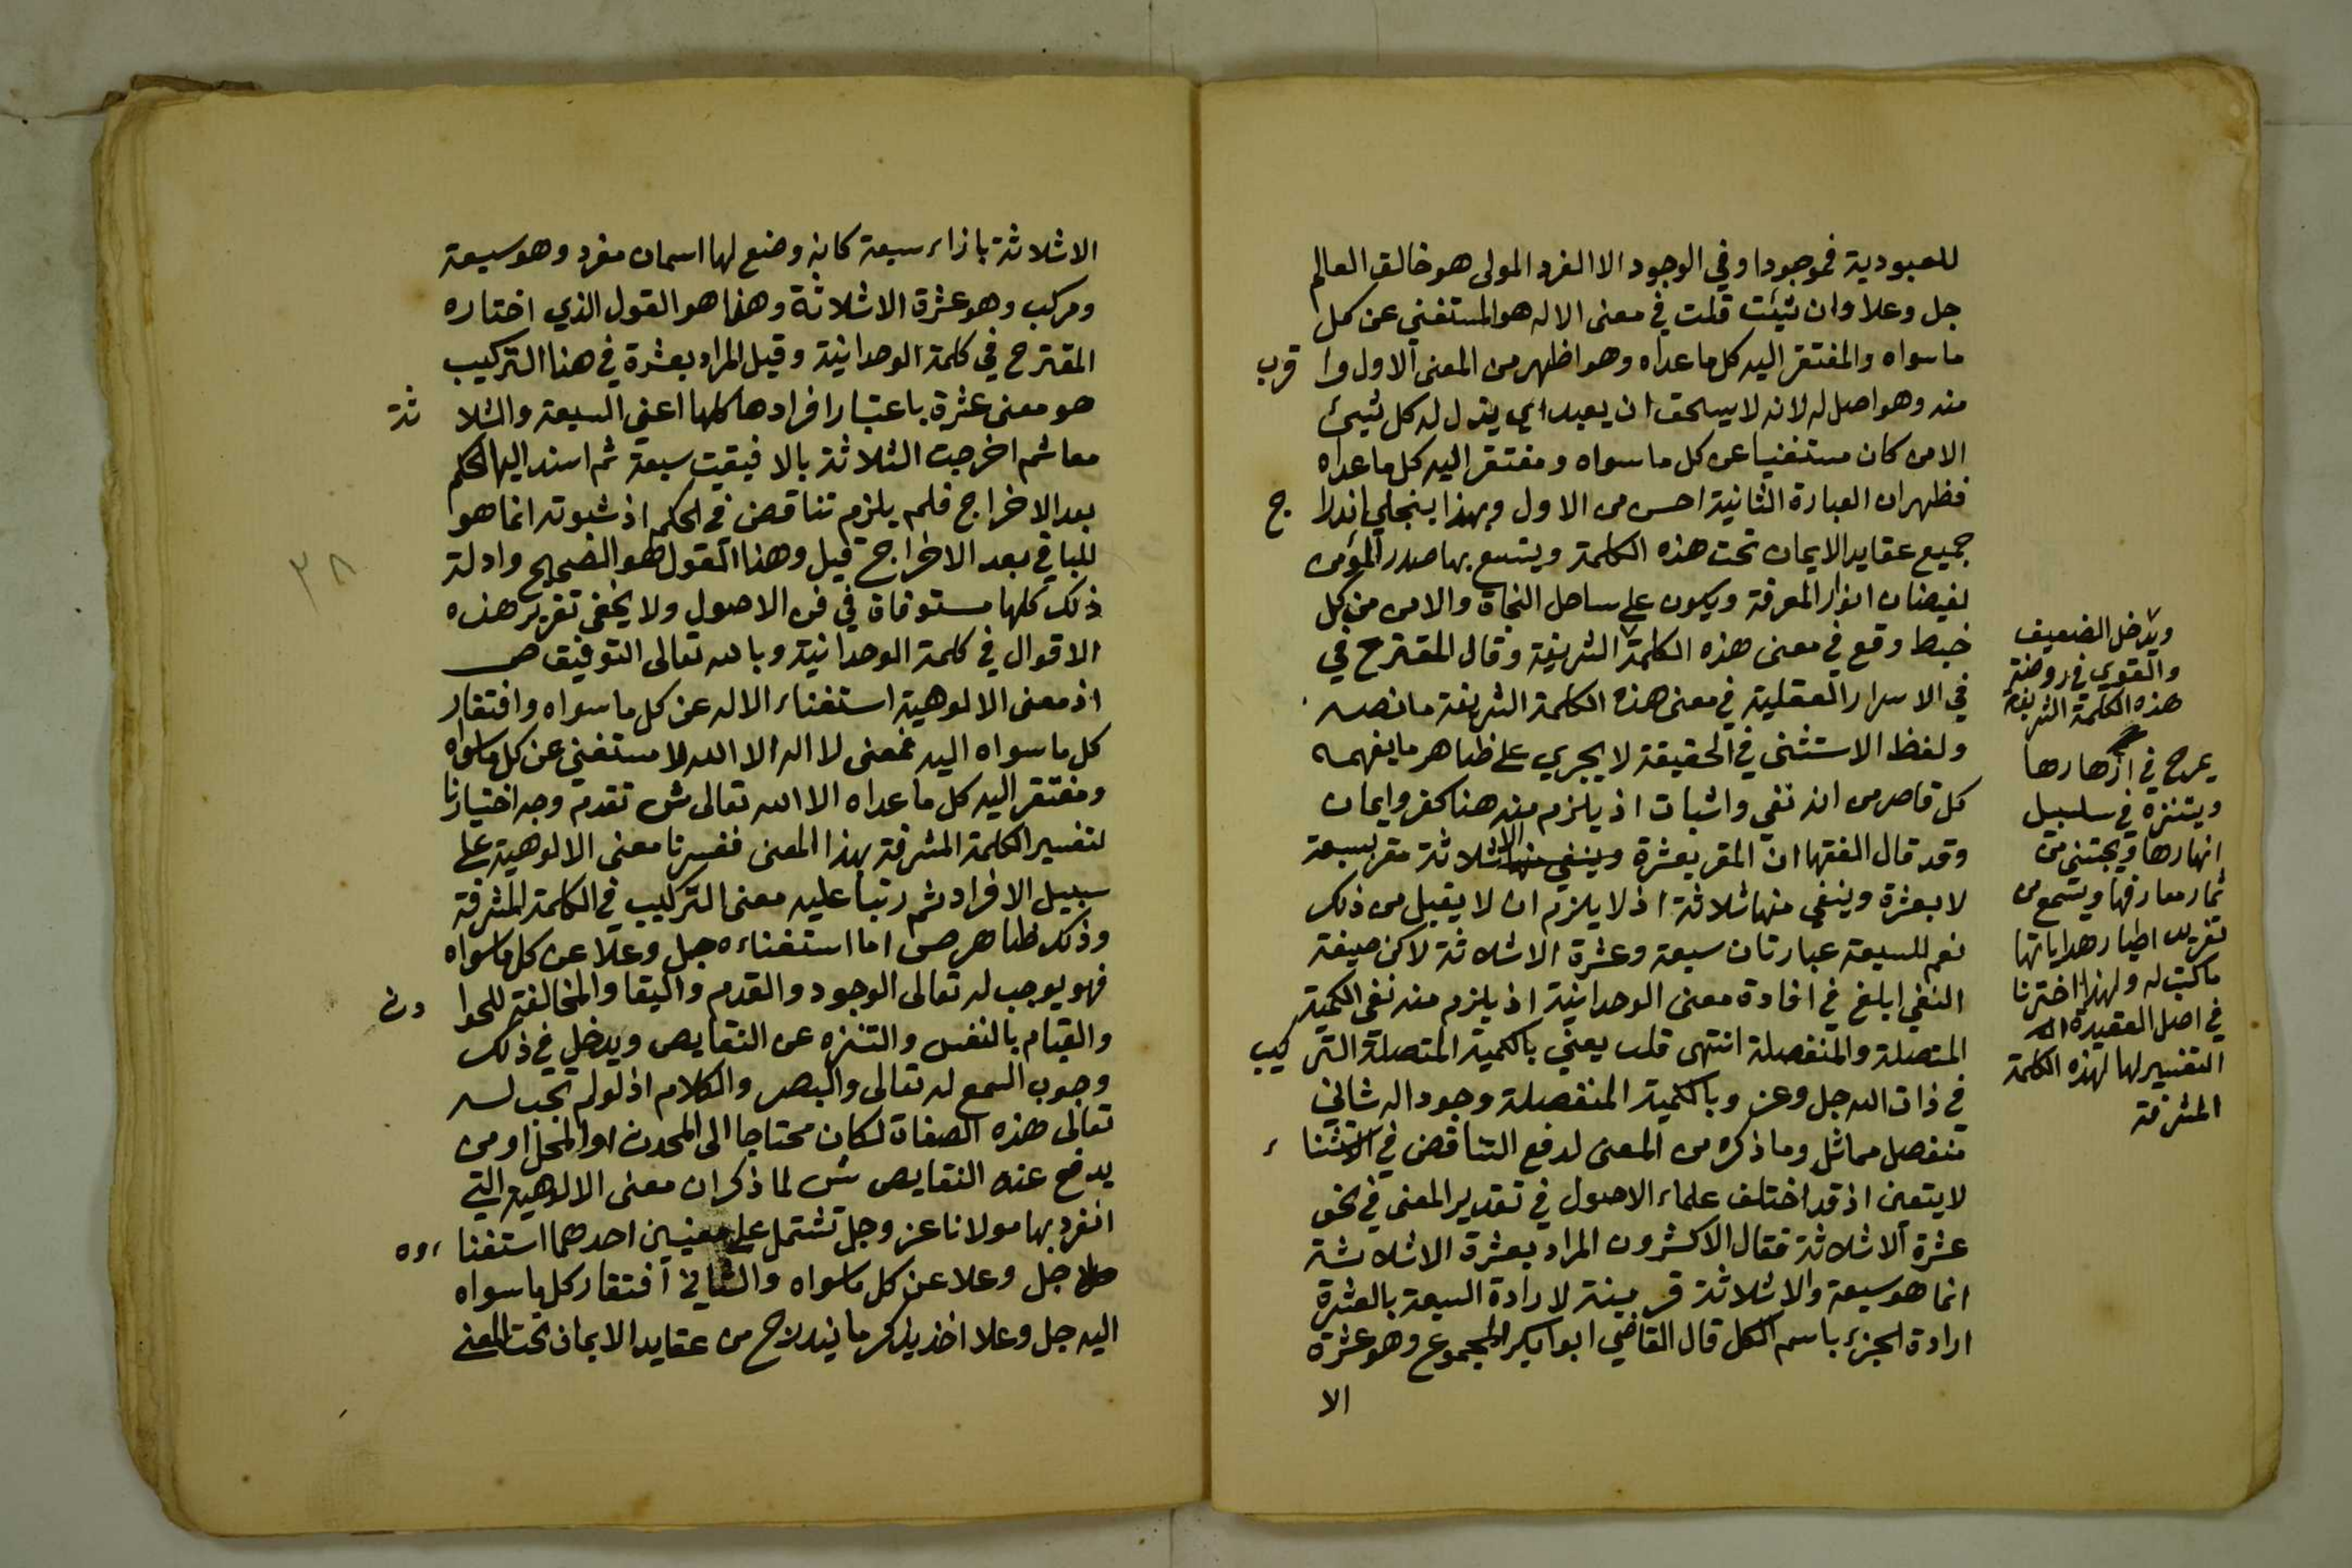 للعبودية فموجودا وفي الوجود الا الفرد المولى هو خالق العالم
جل وعلا وان شيئت قلت في معنى الاله هو المستغني عن كل
ما سواه والمفتقر اليه كل ما عداه وهو اظهر من المعنى الاول وا قرب
منه وهو اصل له لانه لا يستحق ان يعبد اي يذل له كل شيئ
الا من كان مستغنيا عن كل ما سواه ومفتقر اليه كل ما عداه
فظهر ان العبارة الثانية احسن من الاول وبهذا ينجلي اندرا ج
جميع عقايد الايمان تحت هذه الكلمة ويتسع بها صدر المؤمن
لفيضان انوار المعرفة ويكون على ساحل النجاة والامن من كل
خبط وقع في معنى هذه الكلمة الشريفة وقال المقترح في
في الاسرار العقلية في معنى هذه الكلمة الشريفة ما نصه
ولفظ الاستثنى في الحقيقة لا يجري على ظاهر ما يفهمه
كل قاصر من انه نفي واثبات اذ يلزم منه هنا كفر وايمان
وقد قال الفقها ان المقر بعشرة الا ثلاثة مقر بسبعة
لا بعشرة وينفي منها ثلاثة اذ لا يلزم ان لا يقبل من ذلك
نعم للسبعة عبارتان سبعة وعشرة الا ثلاثة لاكن صيغة
النفي ابلغ في افادة معنى الوحدانية اذ يلزم منه نفي الكمية
المتصلة والمنفصلة انتهى قلت يعني بالكمية المتصلة التر كيب
في ذات الله جل وعز وبالكمية المنفصلة وجود اله ثاني
منفصل مماثل وما ذكره من المعنى لدفع التناقض في الاستثنا ء
لا يتعين اذ قد اختلف علماء الاصول في تقدير المعنى في نحو
عشرة الا ثلاثة فقال الاكثرون المراد بعشرة الا ثلاثة
انما هو سبعة والا ثلاثة قرينة لارادة السبعة بالعشرة
ارادة الجزء باسم الكل قال القاضي ابو ابكر المجموع وهو عشرة
الا
ويدخل الضعيف
والقوي في روضة
هذه الكلمة الشريفة
يمرح في ازهارها
ويتنزه في سلسبيل
انهارها ويجتني من
ثمار معارفها ويسمع من
تغريد اطيار هداياتها
ما كتب له ولهذا اخترنا
في اصل العقيدة
التفسير لها لهذه الكلمة
المشرفة
الا ثلاثة بازاء سبعة كانه وضع لها اسمان مفرد وهو سبعة
ومركب وهو عشرة الا ثلاثة وهذا هو القول الذي اختاره
المقترح في كلمة الوحدانية وقيل المراد بعشرة في هذا التركيب
هو معنى عشرة باعتبار افرادها كلها اعني السبعة والثلا ثة
معا ثم اخرجت الثلاثة بالا فبقيت سبعة ثم اسند اليها الحكم
بعد الاخراج فلم يلزم تناقض في الحكم اذ ثبوته انما هو
للباقي بعد الاخراج قيل وهذا القول هو الصحيح وادلة
ذلك كلها مستوفاة في فن الاصول ولا يخفى تقرير هذه
الاقوال في كلمة الوحدانية وبالله تعالى التوفيق ص
اذ معنى الالوهية استغناء الاله عن كل ما سواه وافتقار
كل ما سواه اليه فمعنى لا اله الا الله لا مستغني عن كل ما سواه
ومفتقر اليه كل ما عداه الا الله تعالى ش تقدم وجه اختيارنا
لتفسير الكلمة المشرفة بهذا المعنى ففسرنا معنى الالوهية على
سبيل الافراد ثم رتبا عليه معنى التركيب في الكلمة المشرفة
وذلك ظاهر ص اما استغناءه جل وعلا عن كل ما سواه
فهو يوجب له تعالى الوجود والقدم والبقا والمخالفة للحوا دث
والقيام بالنفس والتنزه عن النقايص ويدخل في ذلك
وجوب السمع له تعالى والبصر والكلام اذ لو لم تجب له
تعالى هذه الصفاة لكان محتاجا الى المحدث او المحل او من
يدفع عنه النقايص ش لما ذكر ان معنى الالوهية التي
انفرد بها مولانا عز وجل تشتمل على معنيين احدهما استغنا ءه
جل وعلا عن كل ما سواه والثاني افتقار كل ما سواه
اليه جل وعلا اخذ يذكر ما يندرج من عقايد الايمان تحت المعنى
٣٨